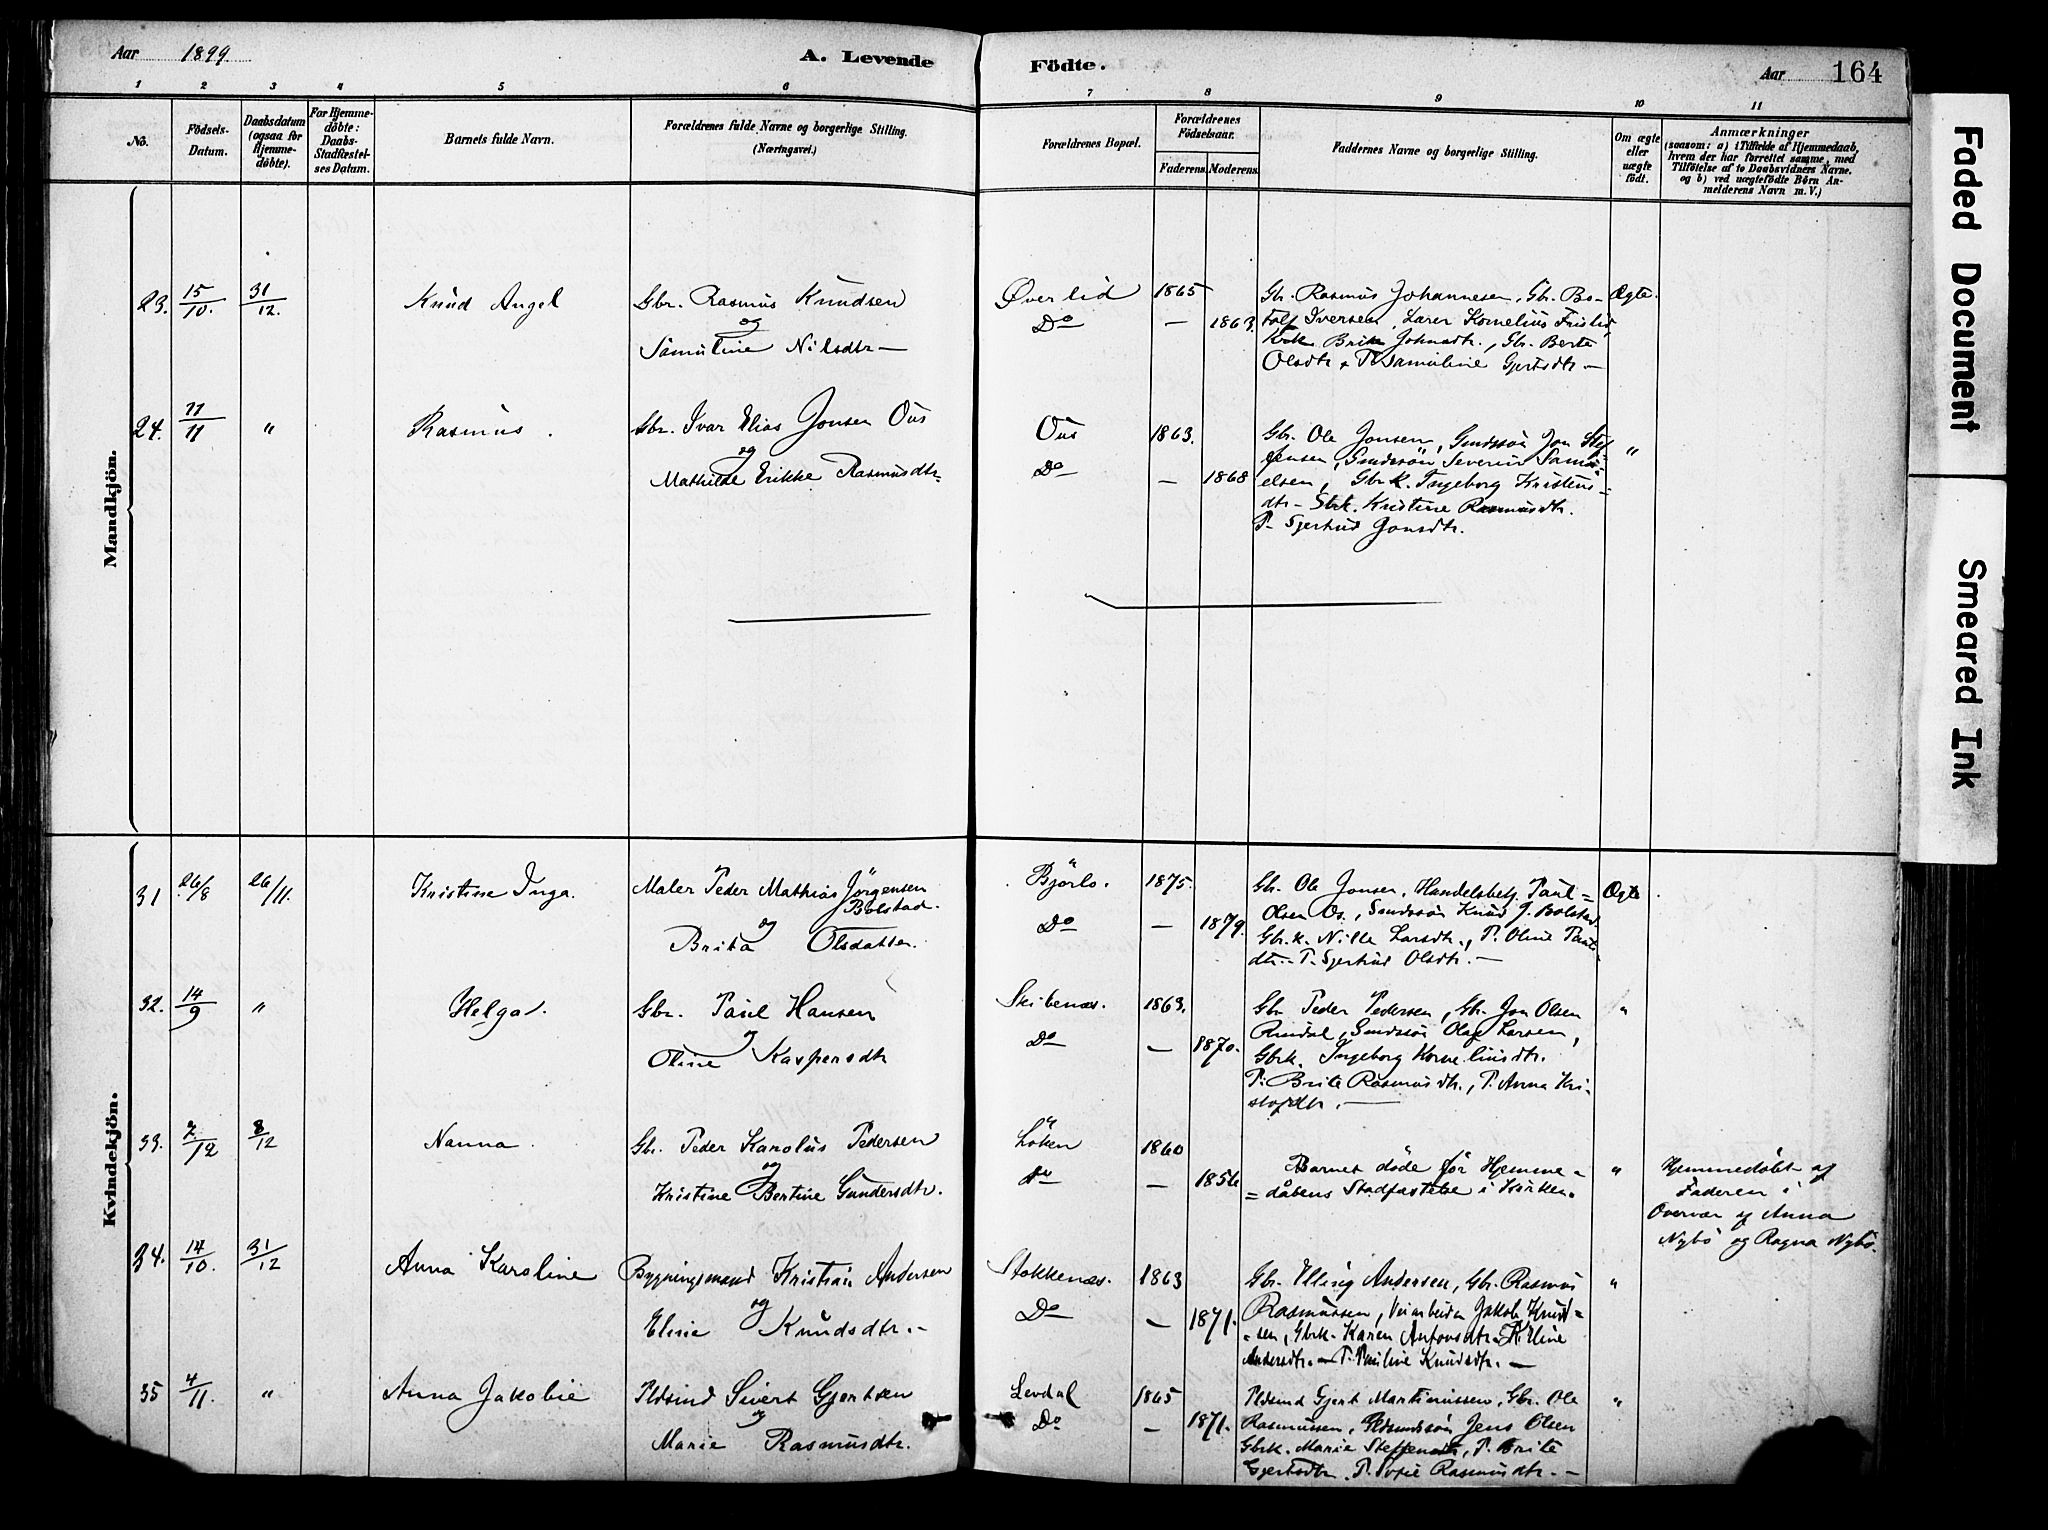 Aar 1899. A. Levende Födte. Aar 164
1 2 3 4 5 6 7 8 9 10 11
No.
Födsels-
Datum.
Daabsdatum
(ogsaa for
Hjemme-
döbte).
For Hjemme-
döbte:
Daabs-
Stadfæstel-
ses Datum.
Barnets fulde Navn.
Forældrenes fulde Navne og borgerlige Stilling.
(Næringsvei.)
Forældrenes Bopæl.
Forældrenes
Födselsaar.
Faderens. Moderens.
Faddernes Navne og borgerlige Stilling.
Om ægte
eller
uægte
födt.
Anmærkninger
(saasom: a) i Tilfælde af Hjemmedaab,
hvem der har forrettet samme, med
Tilföielse af to Daabsvidners Navne.
og b) ved uægtefödte Börn An-
melderens Navn m. V.)
Mandkjön.
23. 15/10. 31/12. Knud Angel
Gbr. Rasmus Knudsen
og
Samuline Nilsdtr —
Øverlid 1865
Do — 1863.
Gb. Rasmus Johannesen, Gb. Bo-
tolf Iversen, Lærer Kornelius Fristad
Brite Johnsdtr., Gb. Berte
Olsdtr Samuline Gjertsdtr. —
Ægte.
24. 11/11 " Rasmus.
Gbr. Ivar Elias Jonsen Ous
og
Mathilde Erikke Rasmusdtr
Ous 1863.
Do — 1868
Gbr. Ole Jonsen, Gmdssön Jon Stef-
fensen, Gmdssön Severin Samu-
elsen, Gbrk. Ingeborg Kristens-
dtr — Gbrk. Kristine Rasmusdtr.
P. Gjertrud Jonsdtr.
"
Kvindekjön.
31 26/8 26/11. Kristine Inga.
Maler Peder Mathias Jörgensen
Bolstad.
og
Brita Olsdatter.
Björlo. 1875.
Do — 1879.
Gb. Ole Jonsen, Handelsbetj. Paul
Olsen Os, Gmdssön Knud J. Bolstad
Gbr.k. Nille Larsdtr., P. Oline Pauls
dtr. - P. Gjertrud Olsdtr. —
Ægte.
32. 14/9 " Helga.
Gbr. Paul Hansen
og
Oline Kaspersdtr
Skibenæs. 1863.
Do — 1870.
Gb. Peder Pedersen, Gb. Jon Olsen
Rindal, Gmdssön Olaf Larsen,
Gbrk. Ingeborg Korneliusdtr.
P. Brite Rasmusdtr., P. Anna Kri-
stofdtr. —
"
33. 2/12 8/12 Nanna.
Gb. Peder Karolus Pedersen
og
Kristine Bertine Gundersdtr.
Löken 1860
Do — 1856
Barnet døde før Hjemme-
=dåbens Stadfæstelse i Kirken.
"
Hjemmedøbt af
Faderen i
Overvær af Anna
Nybö og Ragna Nybö.
34. 14/10. 31/12 Anna Karoline
Bygningsmand Kristian Andersen
og
Eline Knudsdtr. —
Stokkenæs. 1863
Do — 1871.
Gbr. Elling Andersen, Gbr. Rasmus
Rasmussen, Veiarbeider Jakob Knud-
-sen, Gbrk. Karen Antonsdtr. Eline
Andersdtr. — P. Pauline Knudsdtr. —
"
35 4/11. " Anna Jakobie
Pldsmd Sivert Gjertsen
og
Marie Rasmusdtr.
Levdal 1865
Do — 1871.
Pldsmd Gjert Martinussen, Gbr. Ole
Rasmussen, Pldsmdssön Jens Olsen
Gbrk. Marie Steffensdtr, P. Brite
Gjertsdtr. P. Sofie Rasmusdtr. —
"
Faded Document
Smeared Ink